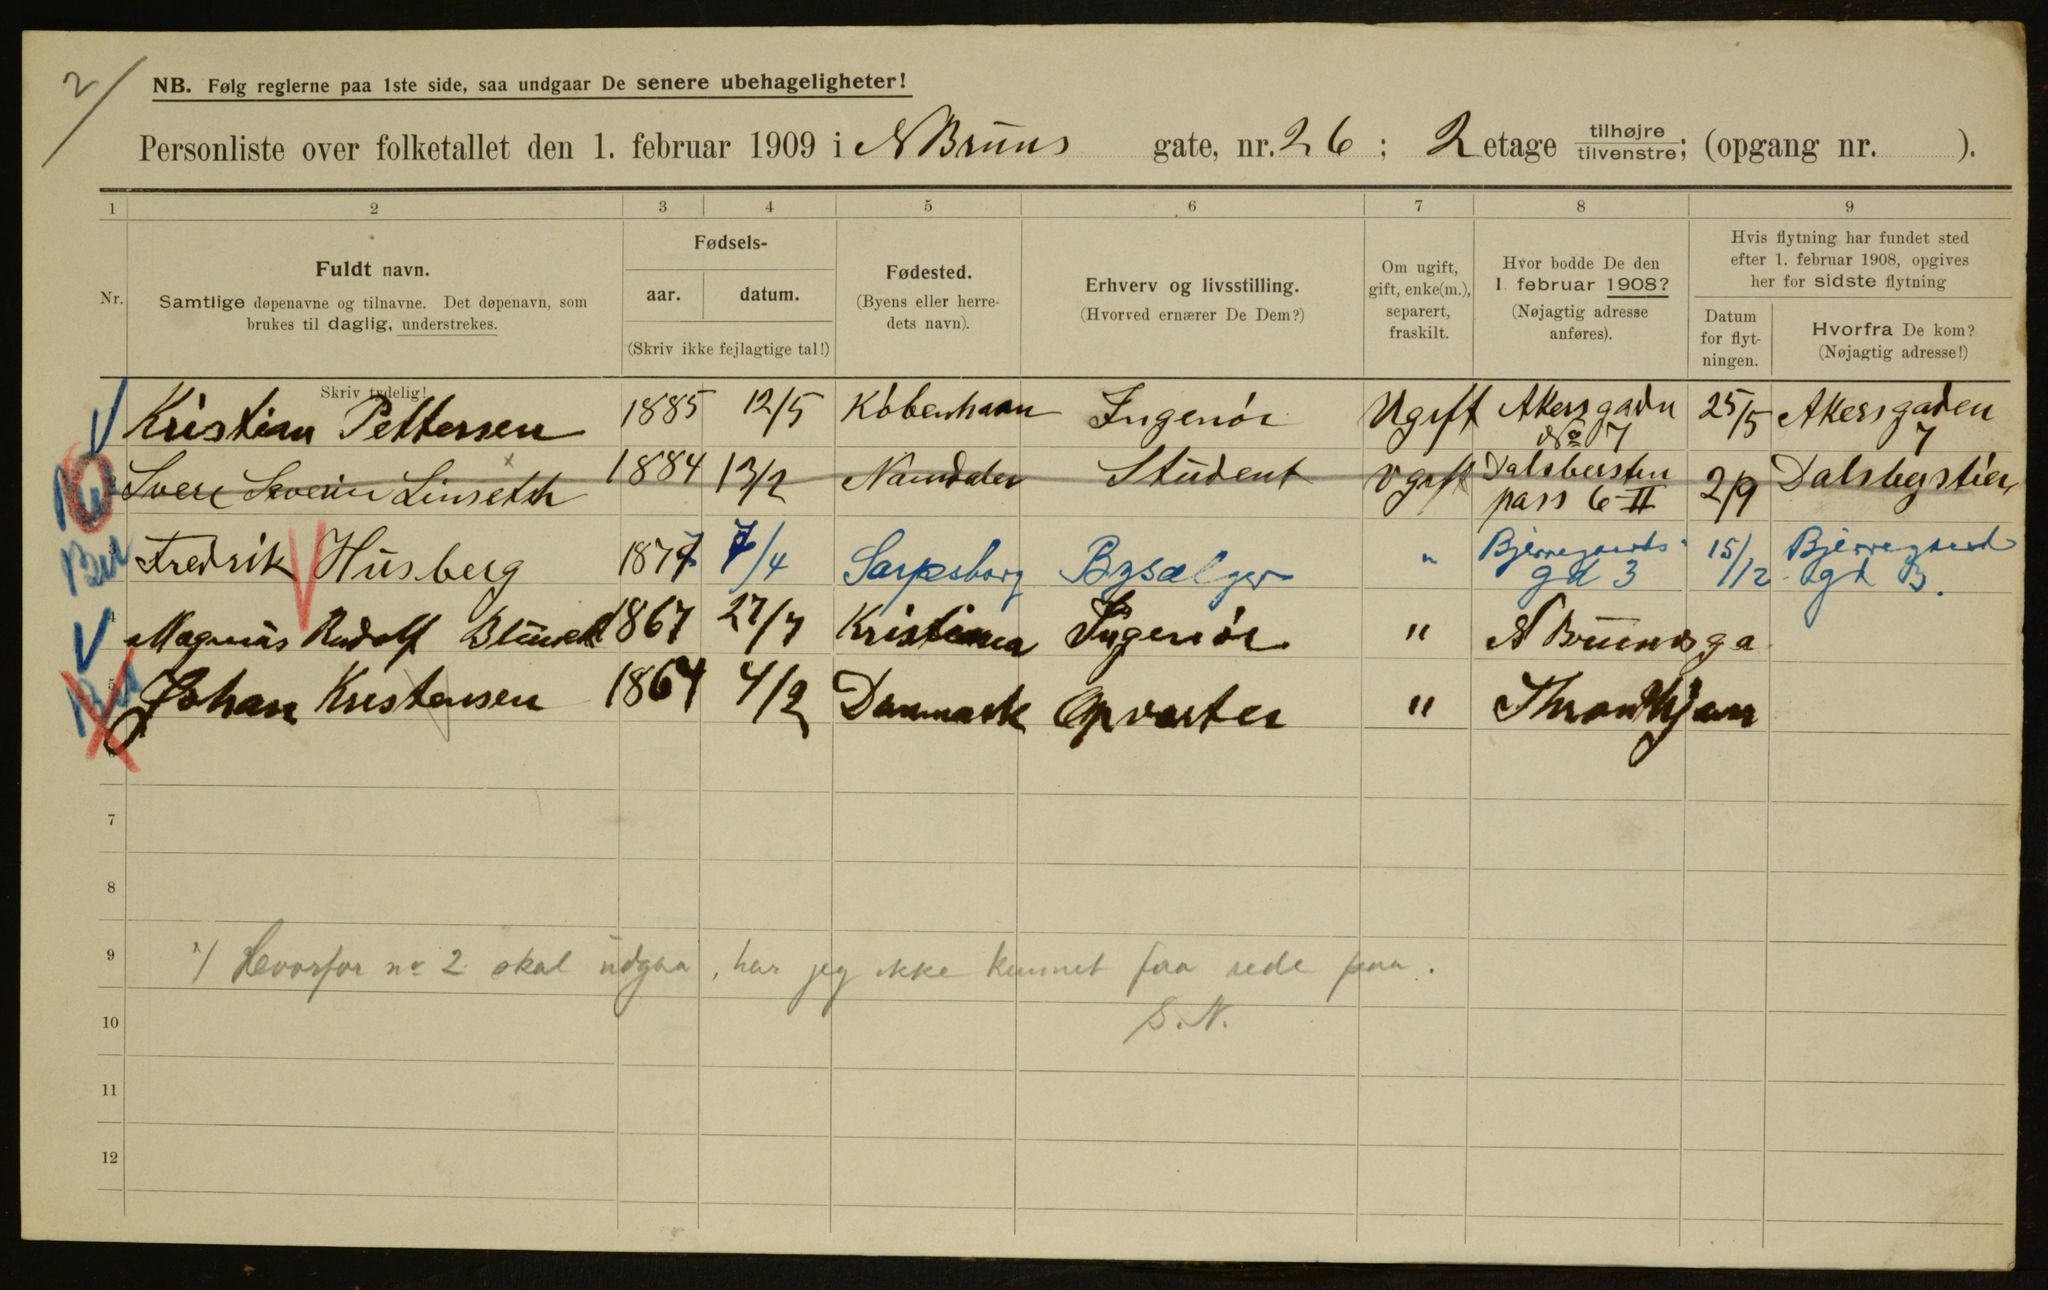 2/
NB. Følg reglerne paa 1ste side, saa undgaar De senere ubehageligheter!
Personliste over folketallet den 1. februar 1909 i N Bruns gate, nr. 26; 2 etage tilhøjre / tilvenstre; (opgang nr. ).
1 2 3 4 5 6 7 8 9
Nr.
Fuldt navn.
Samtlige døpenavne og tilnavne. Det døpenavn, som
brukes til daglig, understrekes.
Skriv tydelig!
Fødsels-
aar. datum.
(Skriv ikke fejlagtige tal!)
Fødested.
(Byens eller herre-
dets navn).
Erhverv og livsstilling.
(Hvorved ernærer De Dem?)
Om ugift,
gift, enke(m.),
separert,
fraskilt.
Hvor bodde De den
1. februar 1908?
(Nøjagtig adresse
anføres).
Hvis flytning har fundet sted
efter 1. februar 1908, opgives
her for sidste flytning
Datum
for flyt-
ningen.
Hvorfra De kom?
(Nøjagtig adresse!)
Kristian Pettersen 1885 12/5 København Ingeniør Ugift Akersgaden No 7 25/5 Akersgaden 7
Sverre Severin Linseth 1884 13/2 Namdalen Student Ugift pass 6 II 2/9
3 Fredrik Husberg 1877 7/4 Sarpsborg " Bjerregaards gd 3 15/12 Bjerregaard gd 3.
4 Magnus Rudolf 1867 27/7 Kristiania Ingeniør " N Bruunsga
5 Johan Kristensen 1864 4/2 Danmark Opvarter " Throndhjem
6
7
8
9 x/ Hvorfor no 2 skal udgaa, har jeg ikke kunnet faa rede paa.
10 S. N.
11
12